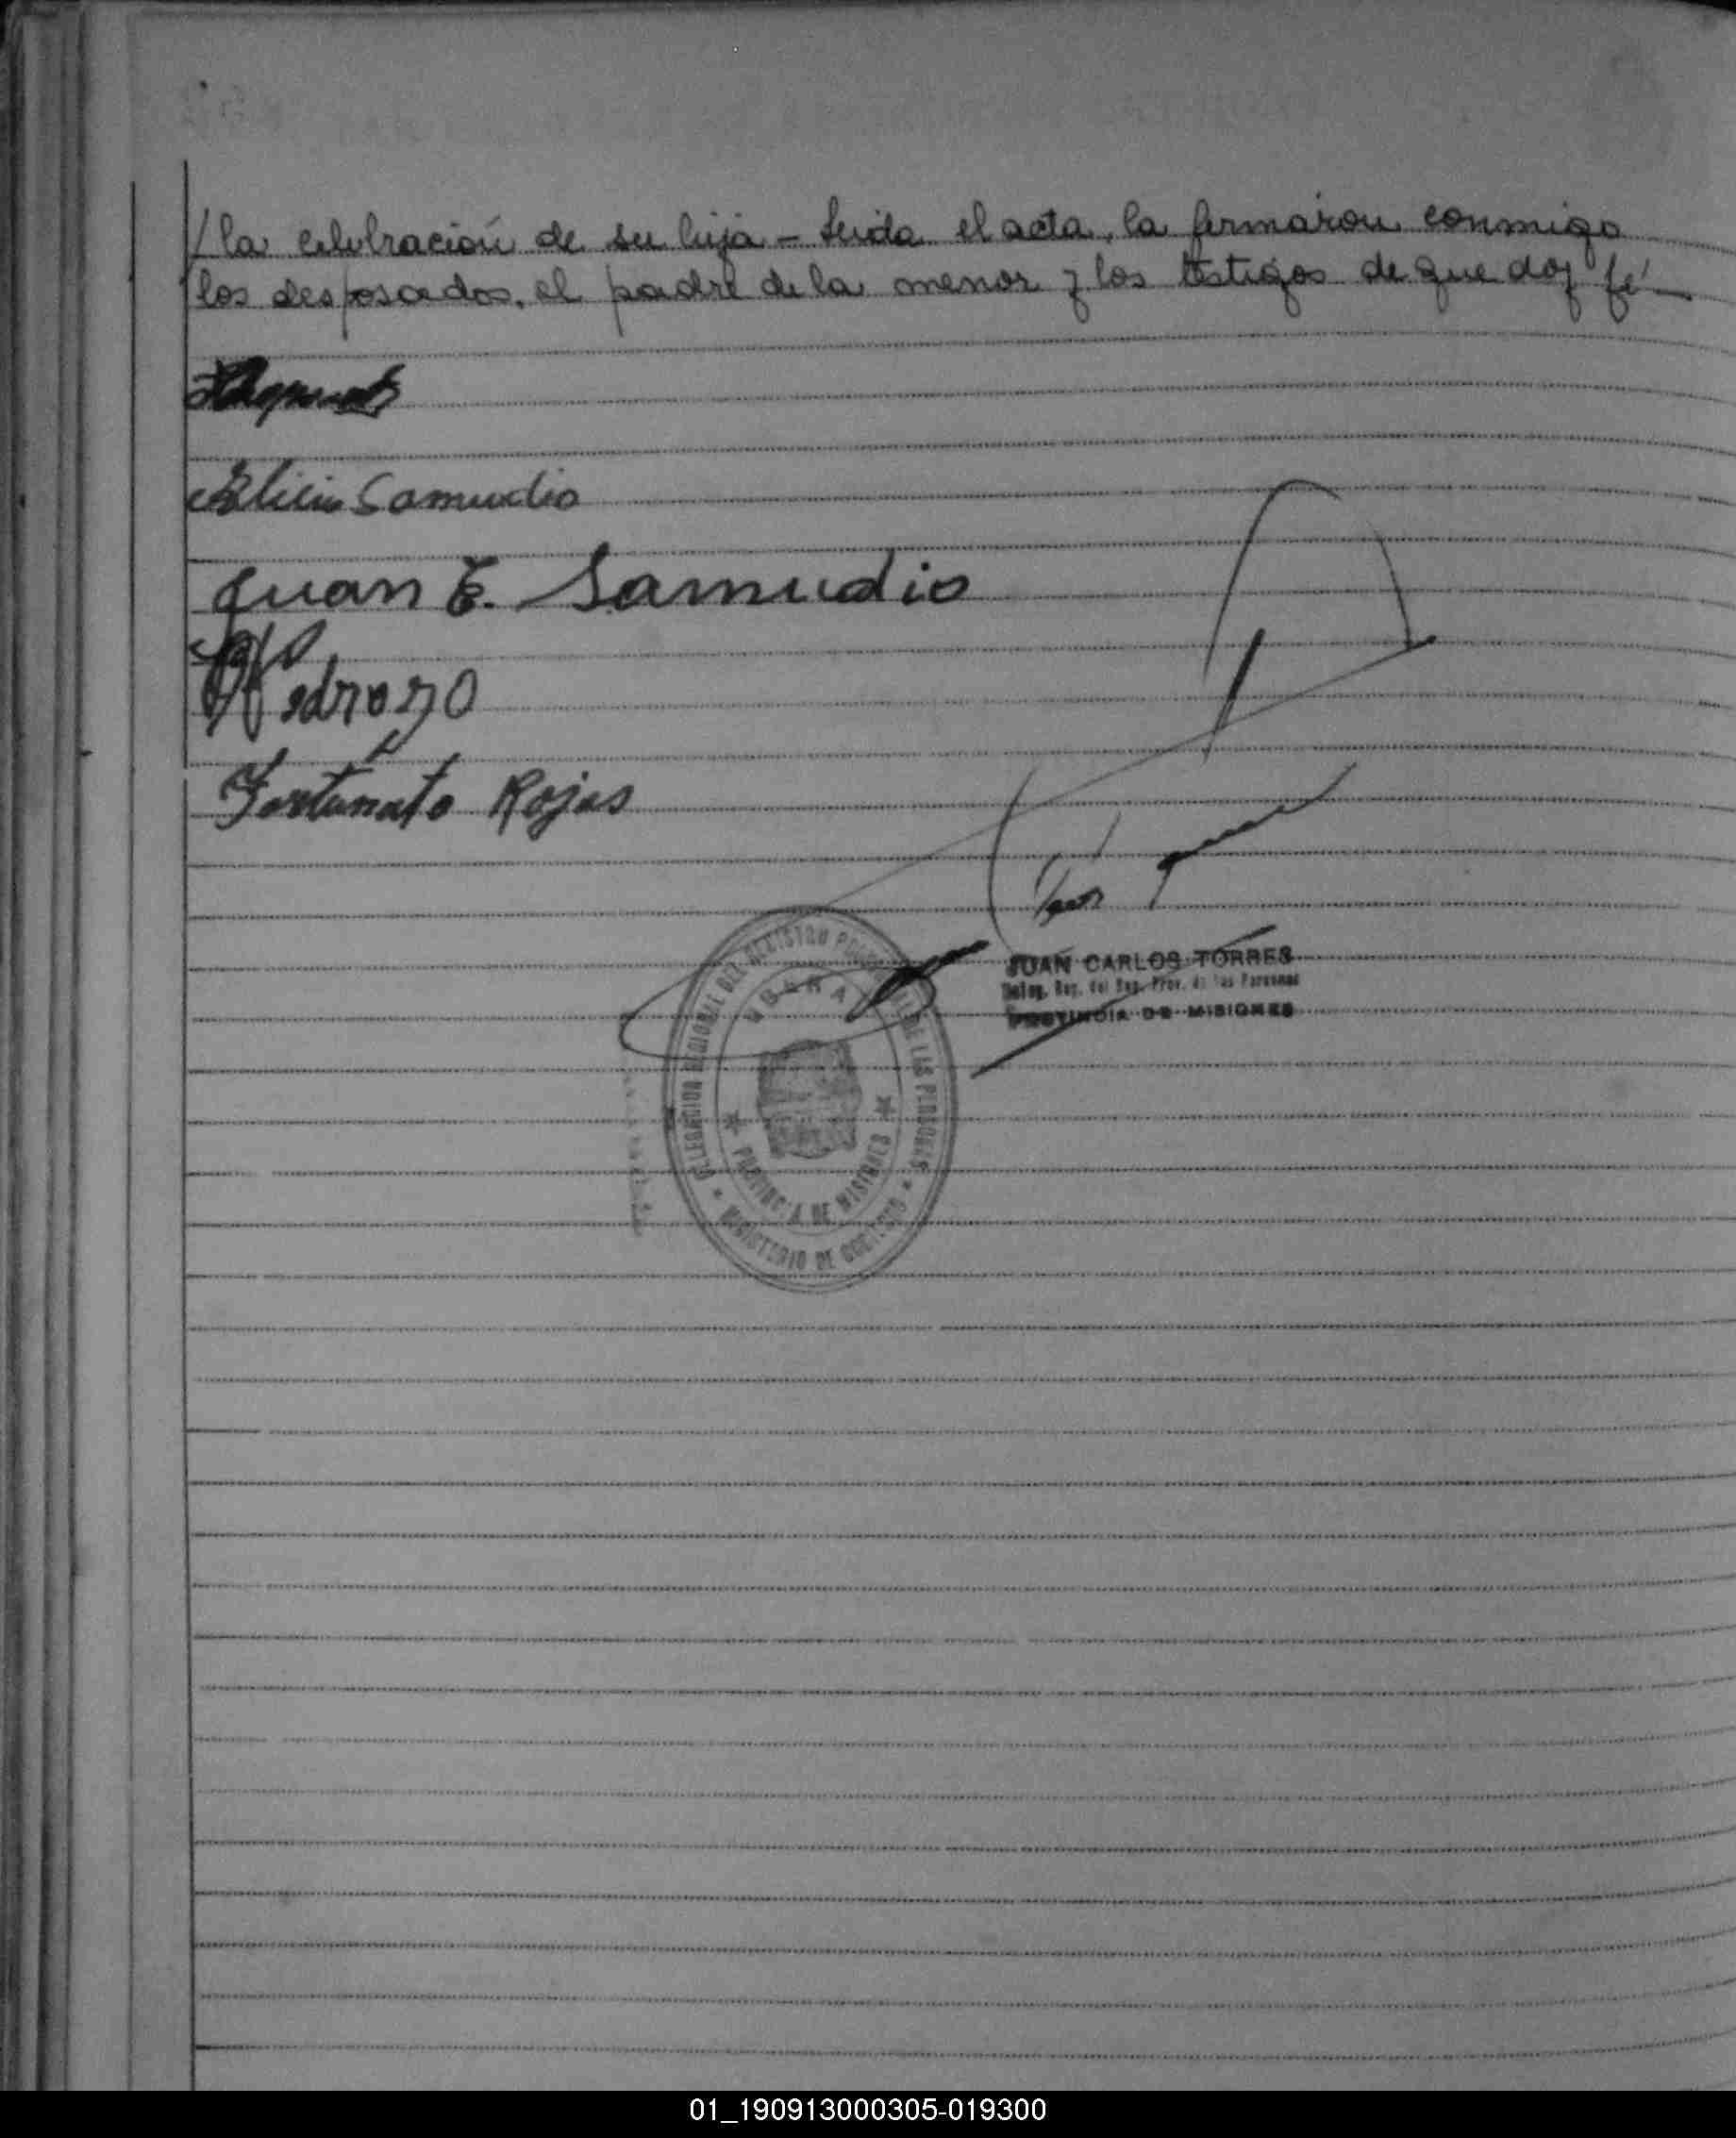 /la celebración de su hija - Leida el acta, la firmaron conmigo
los desposados, el padre de la menor y los testigos de que doy fé -
Samudio
Juan E. Samudio
Pedrozo
Fortunato Rojas
JUAN CARLOS TORRES
Deleg. Reg. del Reg. Prov. de las Personas
PROVINCIA DE MISIONES
DELEGACION REGIONAL DEL REGISTRO PROVINCIAL DE LAS PERSONAS
OBERA
PROVINCIA DE MISIONES
MINISTERIO DE GOBIERNO
01_190913000305-019300